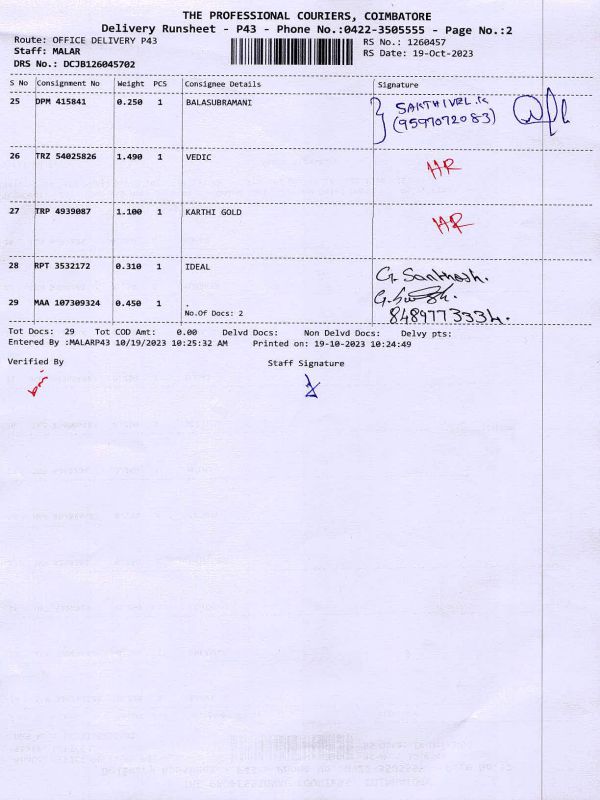 THE PROFESSIONAL COURIERS, COIMBATORE
Delivery Runsheet - P43 - Phone No.:0422-3505555 - Page No.:2
Route: OFFICE DELIVERY P43
Staff: MALAR
DRS No.: DCJB126045702
RS No.: 1260457
RS Date: 19-Oct-2023
S No Consignment No Weight PCS Consignee Details Signature
25 DPM 415841 0.250 1 BALASUBRAMANI
SAKTHIVEL.K
(9597072083)
26 TRZ 54025826 1.490 1 VEDIC HR
27 TRP 4939087 1.100 1 KARTHI GOLD HR
28 RPT 3532172 0.310 1 IDEAL G. Santhosh.
29 MAA 107309324 0.450 1 .
No.Of Docs: 2 8489773334.
Tot Docs: 29 Tot COD Amt: 0.00 Delvd Docs: Non Delvd Docs: Delvy pts:
Entered By :MALARP43 10/19/2023 10:25:32 AM Printed on: 19-10-2023 10:24:49
Verified By Staff Signature